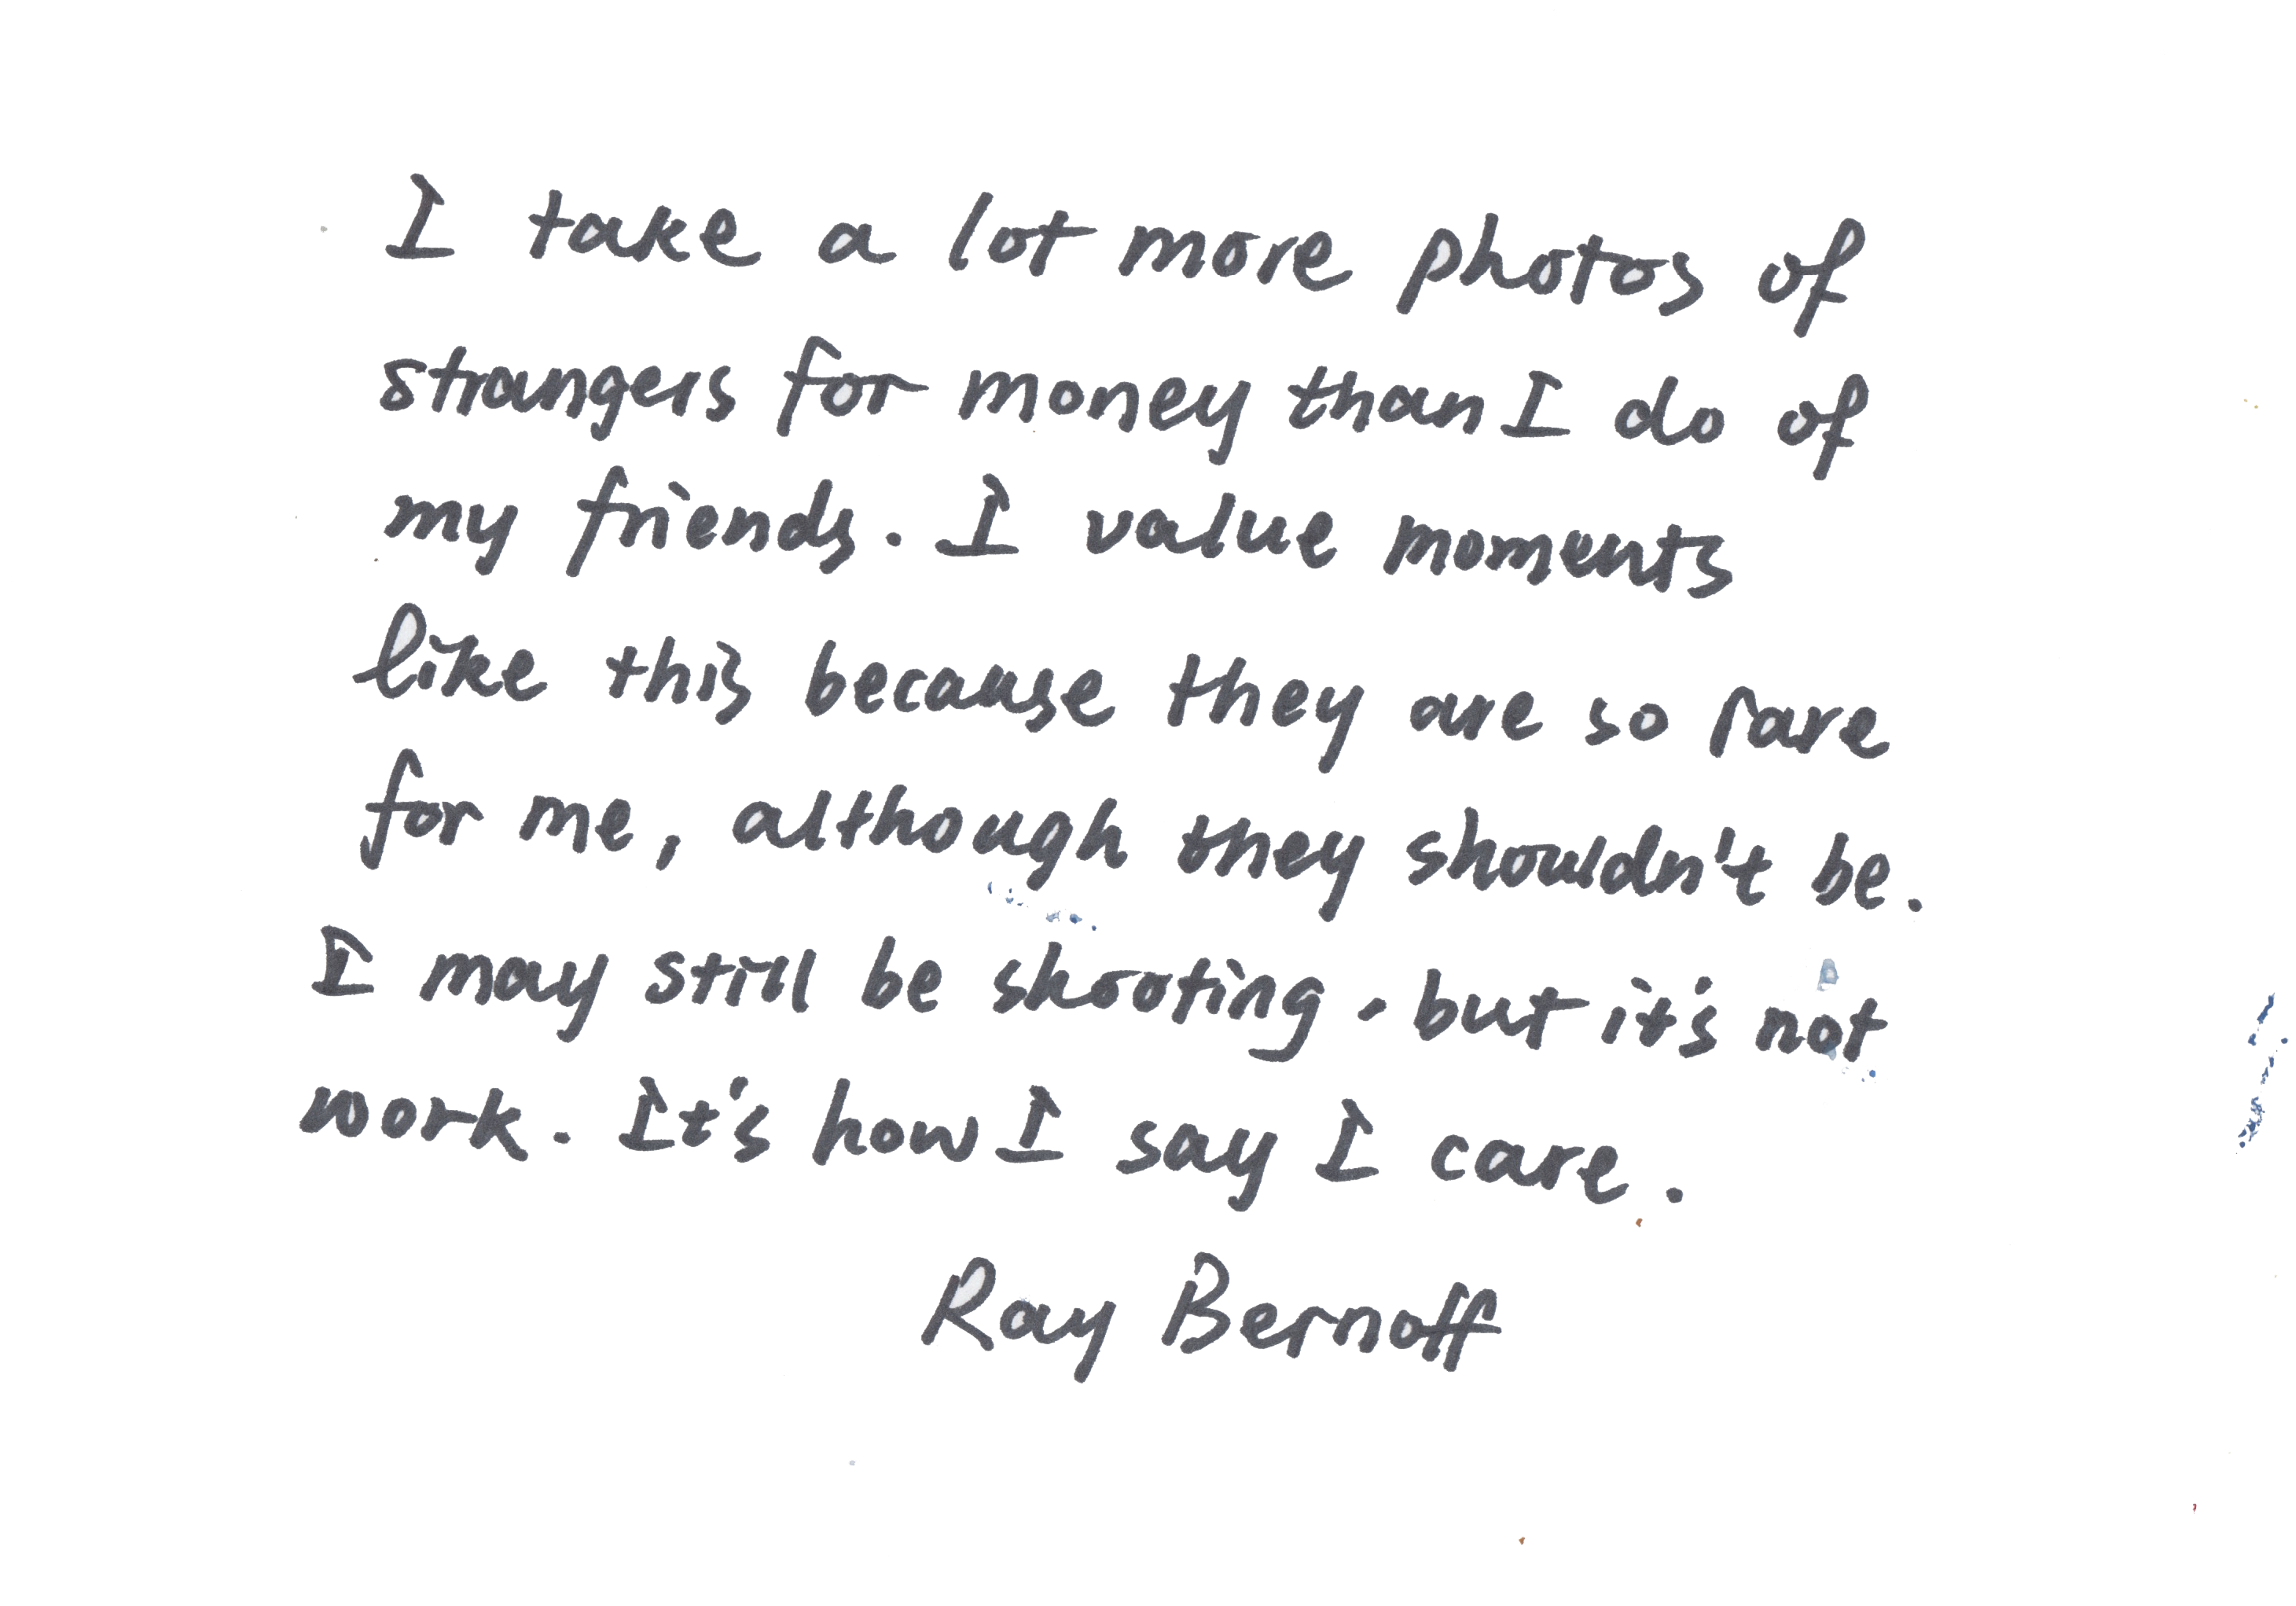 I take a lot more photos of
strangers for money than I do of
my friends. I value moments
like this because they are so rare
for me, although they shouldn't be.
I may still be shooting, but it's not
work. It's how I say I care.
Ray Bernoff